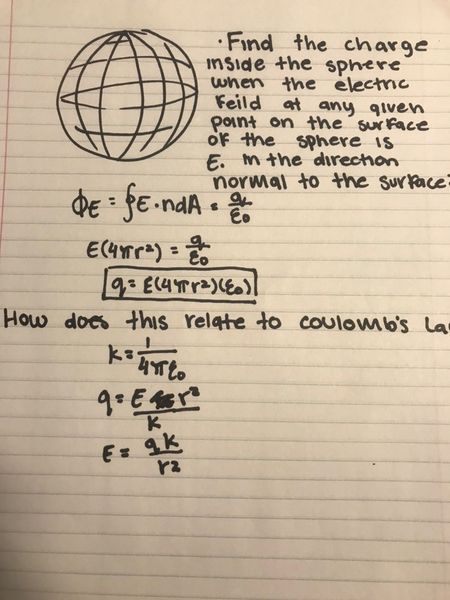 · Find the charge
inside the sphere
when the electric
feild at any given
point on the surface
of the sphere is
E. in the direction
normal to the surface?
ΦE = ∮E·ndA = q/ε0
E(4πr²) = q/ε0
q = E(4πr²)(ε0)
How does this relate to coulomb's
k = 1/4πε0
q = E r²/k
E = qk/r2